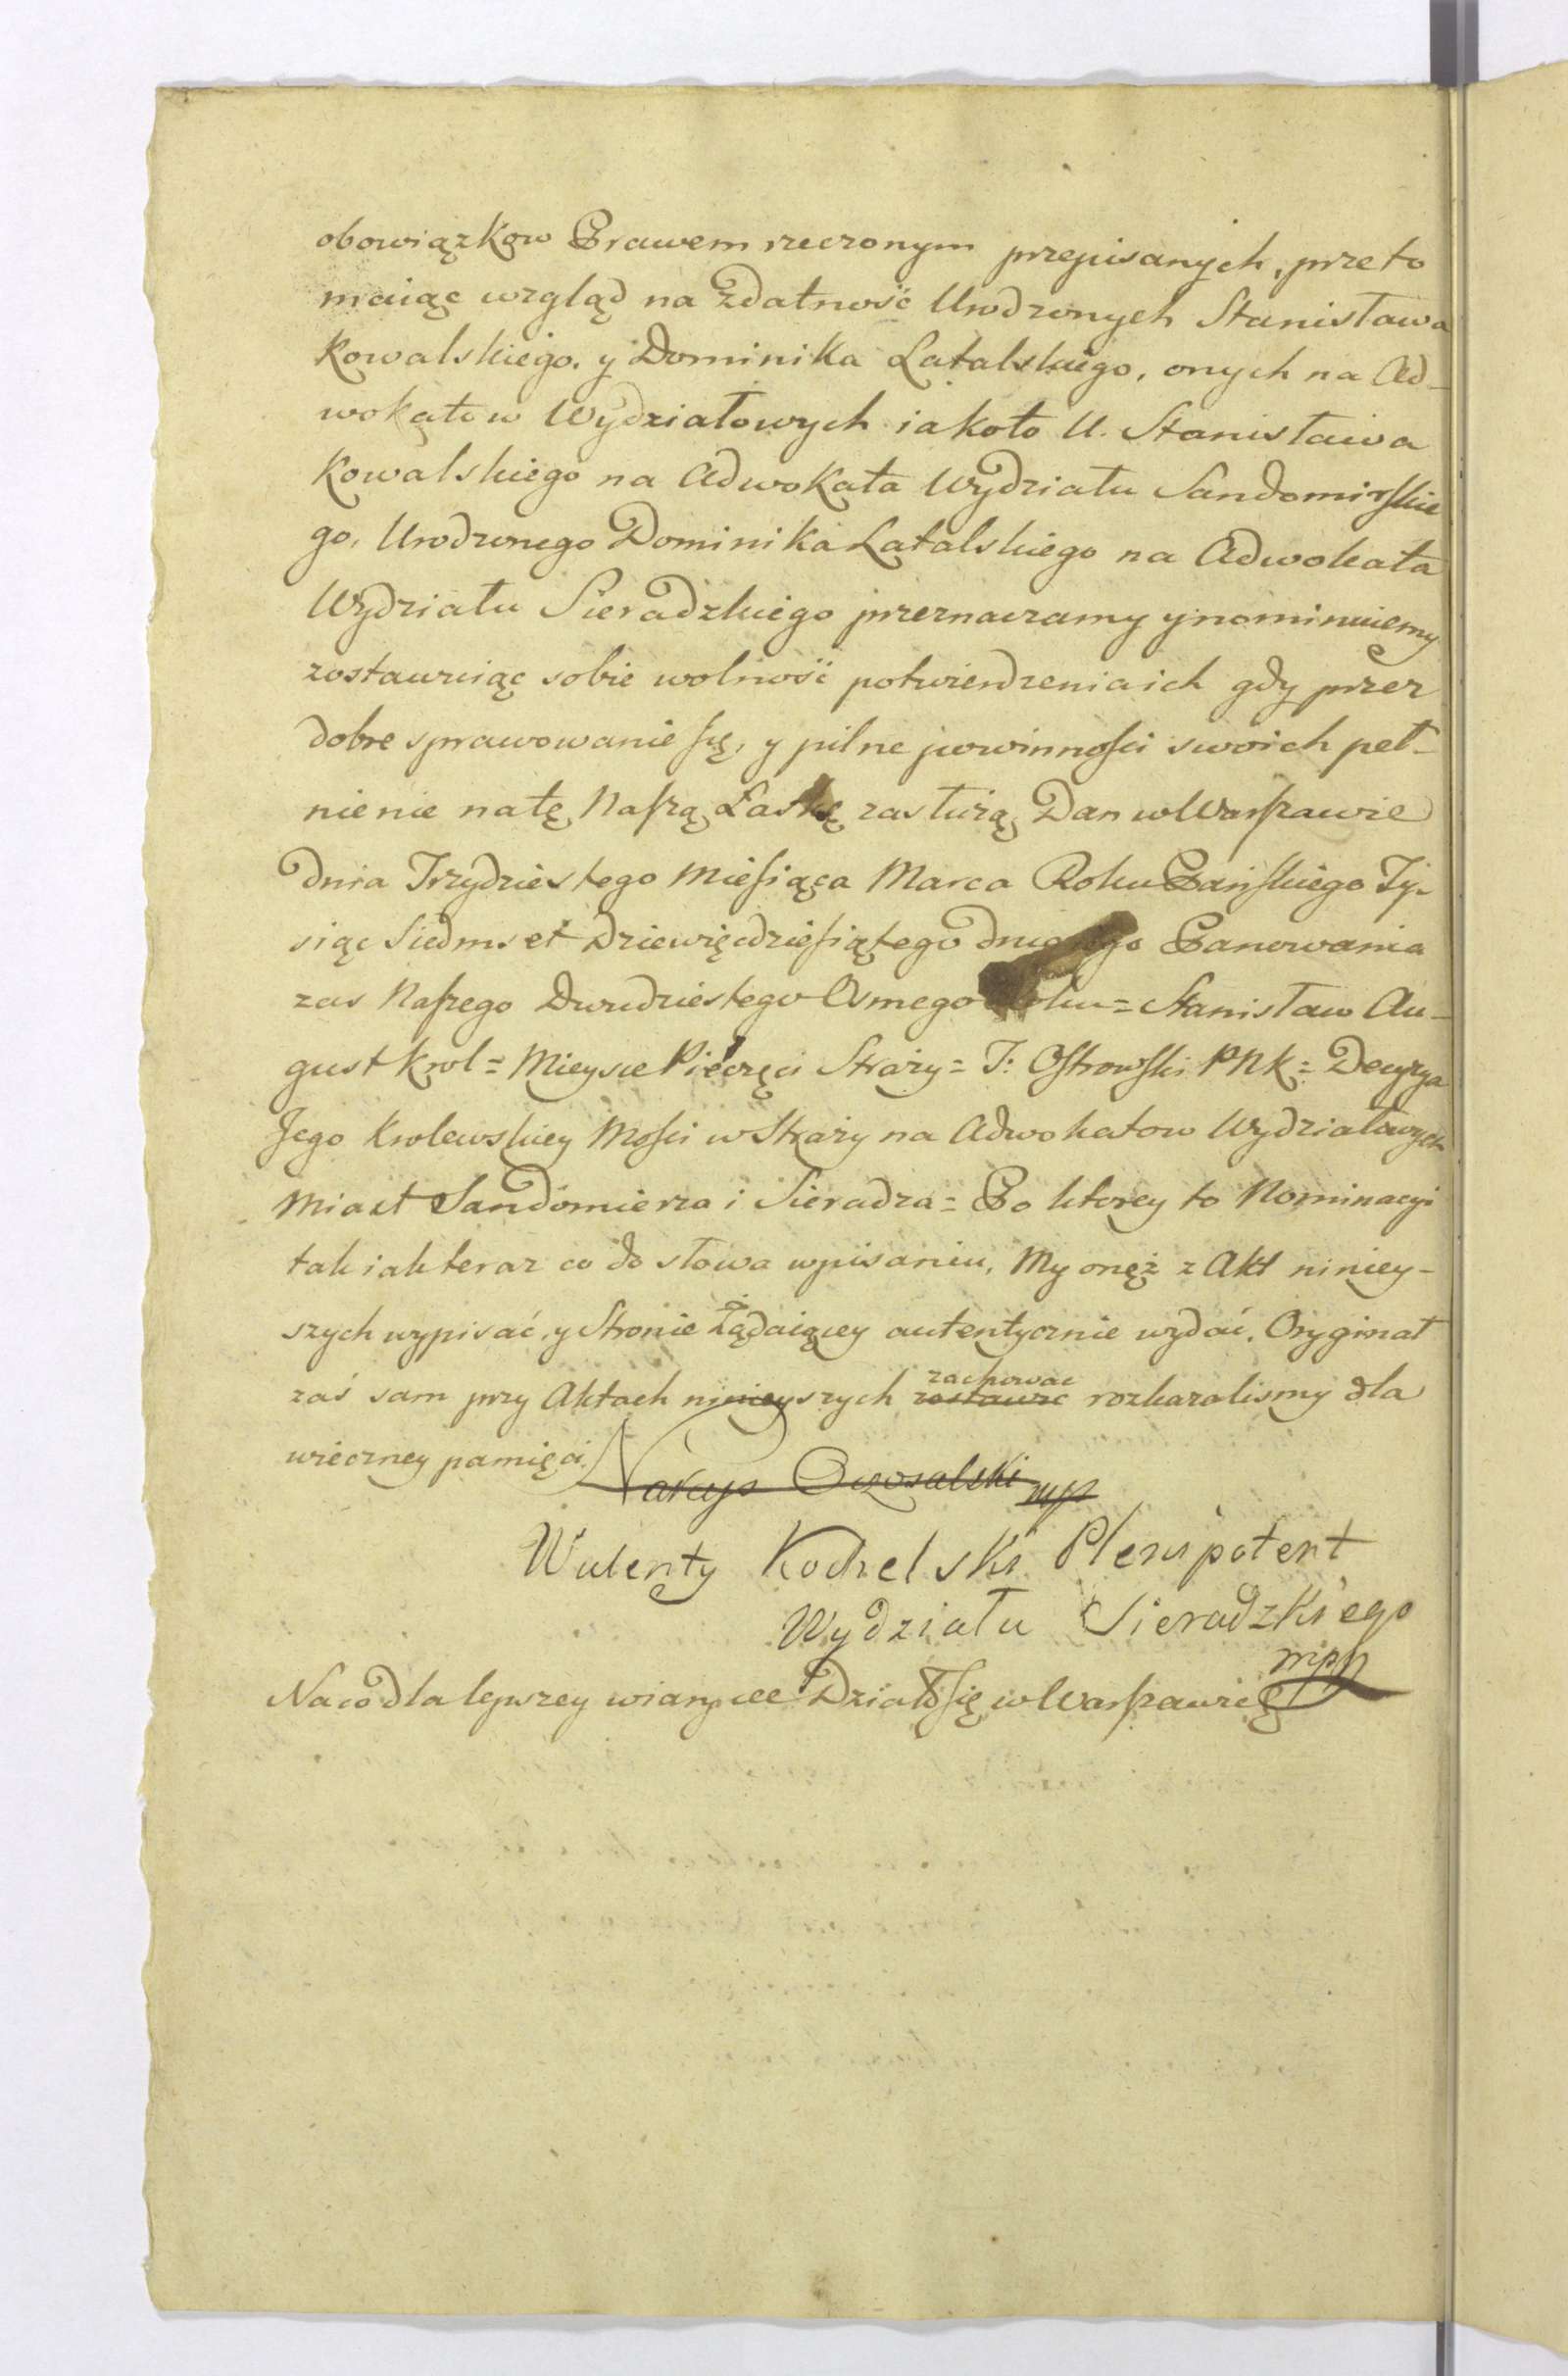 obowiązkow Prawem rzeczonym przepisanych, przeto
maiąc wzgląd na zdatność Urodzonych Stanisława
Kowalskiego, y Dominika Latalskiego, onych na Ad-
wokatow Wydziałowych iakoto U. Stanisława
Kowalskiego na Adwokata Wydziału Sandomirskie
go, Urodzonego Dominika Latalskiego na Adwokata
Wydziału Sieradzkiego przeznaczamy y nominuiemy
zostawuiąc sobie wolność potwierdzenia ich gdy przez
dobre sprawowanie się, y pilne powinności swoich peł-
nienie na tę Naszą Łaskę zasłużą, Dan w Warszawie
dnia Trzydziestego Miesiąca Marca Roku Pańskiego Ty-
siąc Siedmset Dziewięćdziesiątego drugiego Panowania
zas Naszego Dwudziestego Osmego Roku = Stanisław Au-
gust Krol = Mieysce Pieczęci Straży = T: Ostrowski PNK = Decyzya
Jego Krolewskiey Mości w Straży na Adwokatow Wydziałowych
Miast Sandomierza i Sieradza = Po ktorey to Nominacyi
tak iak teraz co do słowa wpisaniu, My onęż z Akt niniey-
szych wypisać, y Stronie Żądaiącey autentycznie wydać, Oryginał
zaś sam przy Aktach ninieyszych zostawic zachowac rozkazalismy dla
wieczney pamięci.
mp
Walenty Kochelski Plenipotent
Wydziału Sieradzkiego
mp
Na co dla lepszey wiary etc Działo się w Warszawie